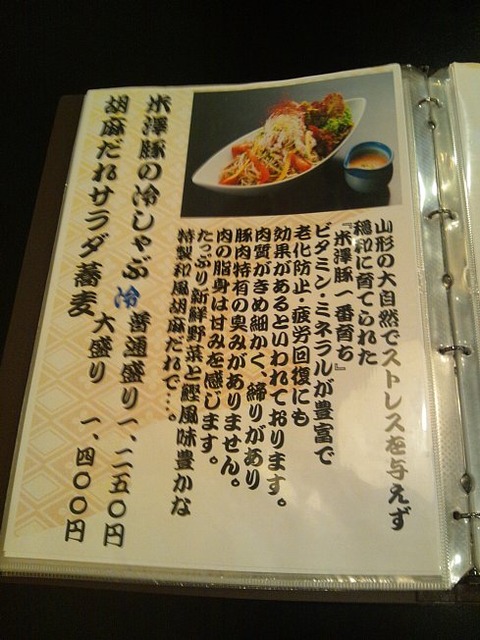 山形の大自然でストレスを与えず
穏和に育てられた
『米澤豚一番育ち』
ビタミン・ミネラルが豊富で
老化防止・疲労回復にも
効果があるといわれております。
肉質がきめ細かく、締りがあり
豚肉特有の臭みがありません。
肉の脂身は甘みを感じます。
たっぷり新鮮野菜と鰹風味豊かな
特製和風胡麻だれで…。
米澤豚の冷しゃぶ 冷 普通盛り 一、二五〇円
胡麻だれサラダ蕎麦 大盛り 一、四〇〇円